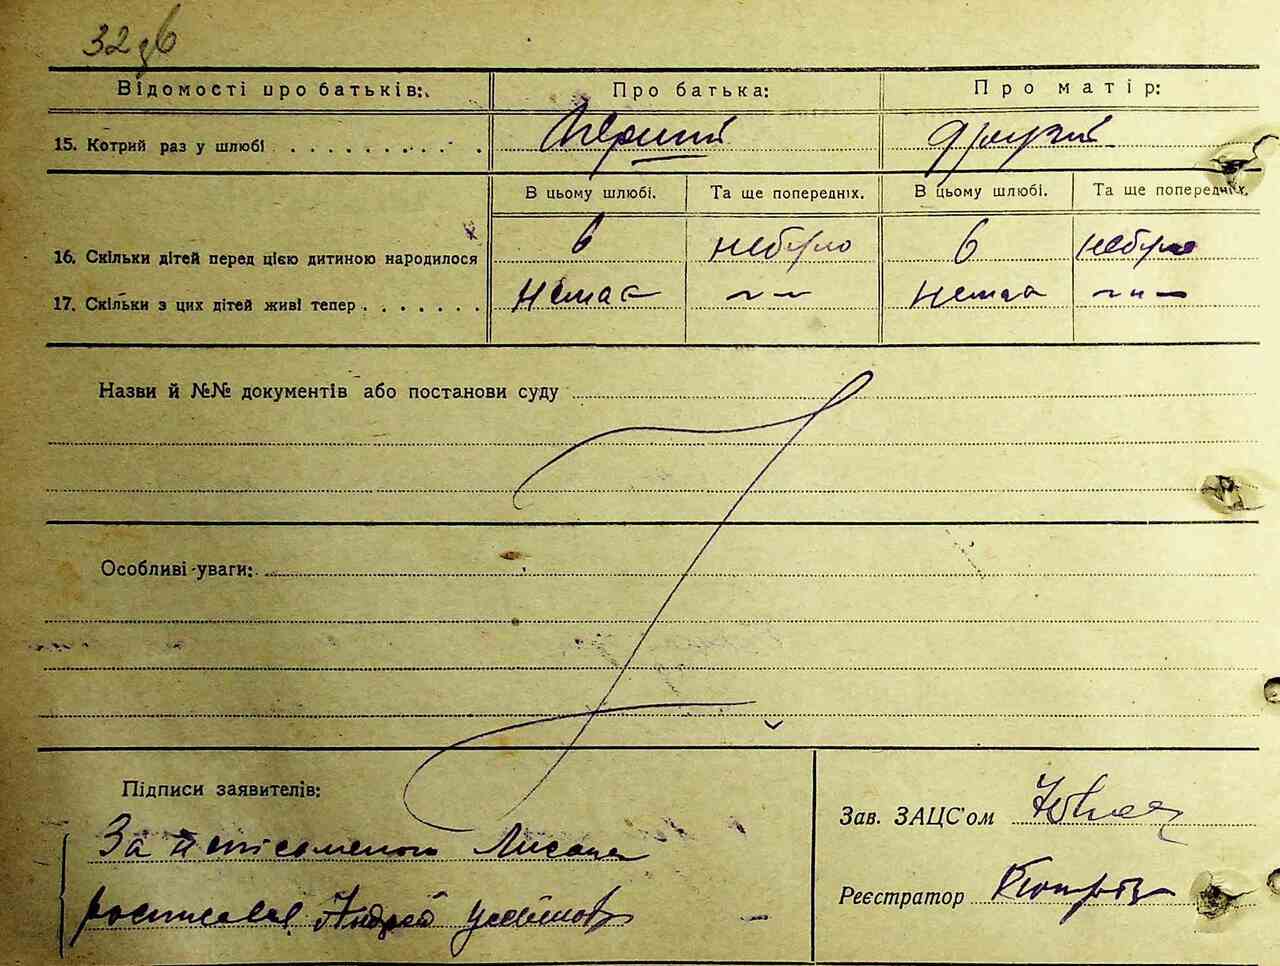 32
Відомості про батьків: Про батька: Про матір:
15. Котрий раз у шлюбі . . . . . . . . . . . Перший другий
В цьому шлюбі. Та ще попередніх. В цьому шлюбі. Та ще попередніх.
16. Скільки дітей перед цією дитиною народилося 6 небуло 6 небуло
17. Скільки з цих дітей живі тепер . . . . . . . немає ~ – – немає ~ " –
Назви й №№ документів або постанови суду
Особливі уваги:
Підписи заявителів:
За неписьменого
росписався Андрей
Зав. ЗАЦС'ом
Реєстратор